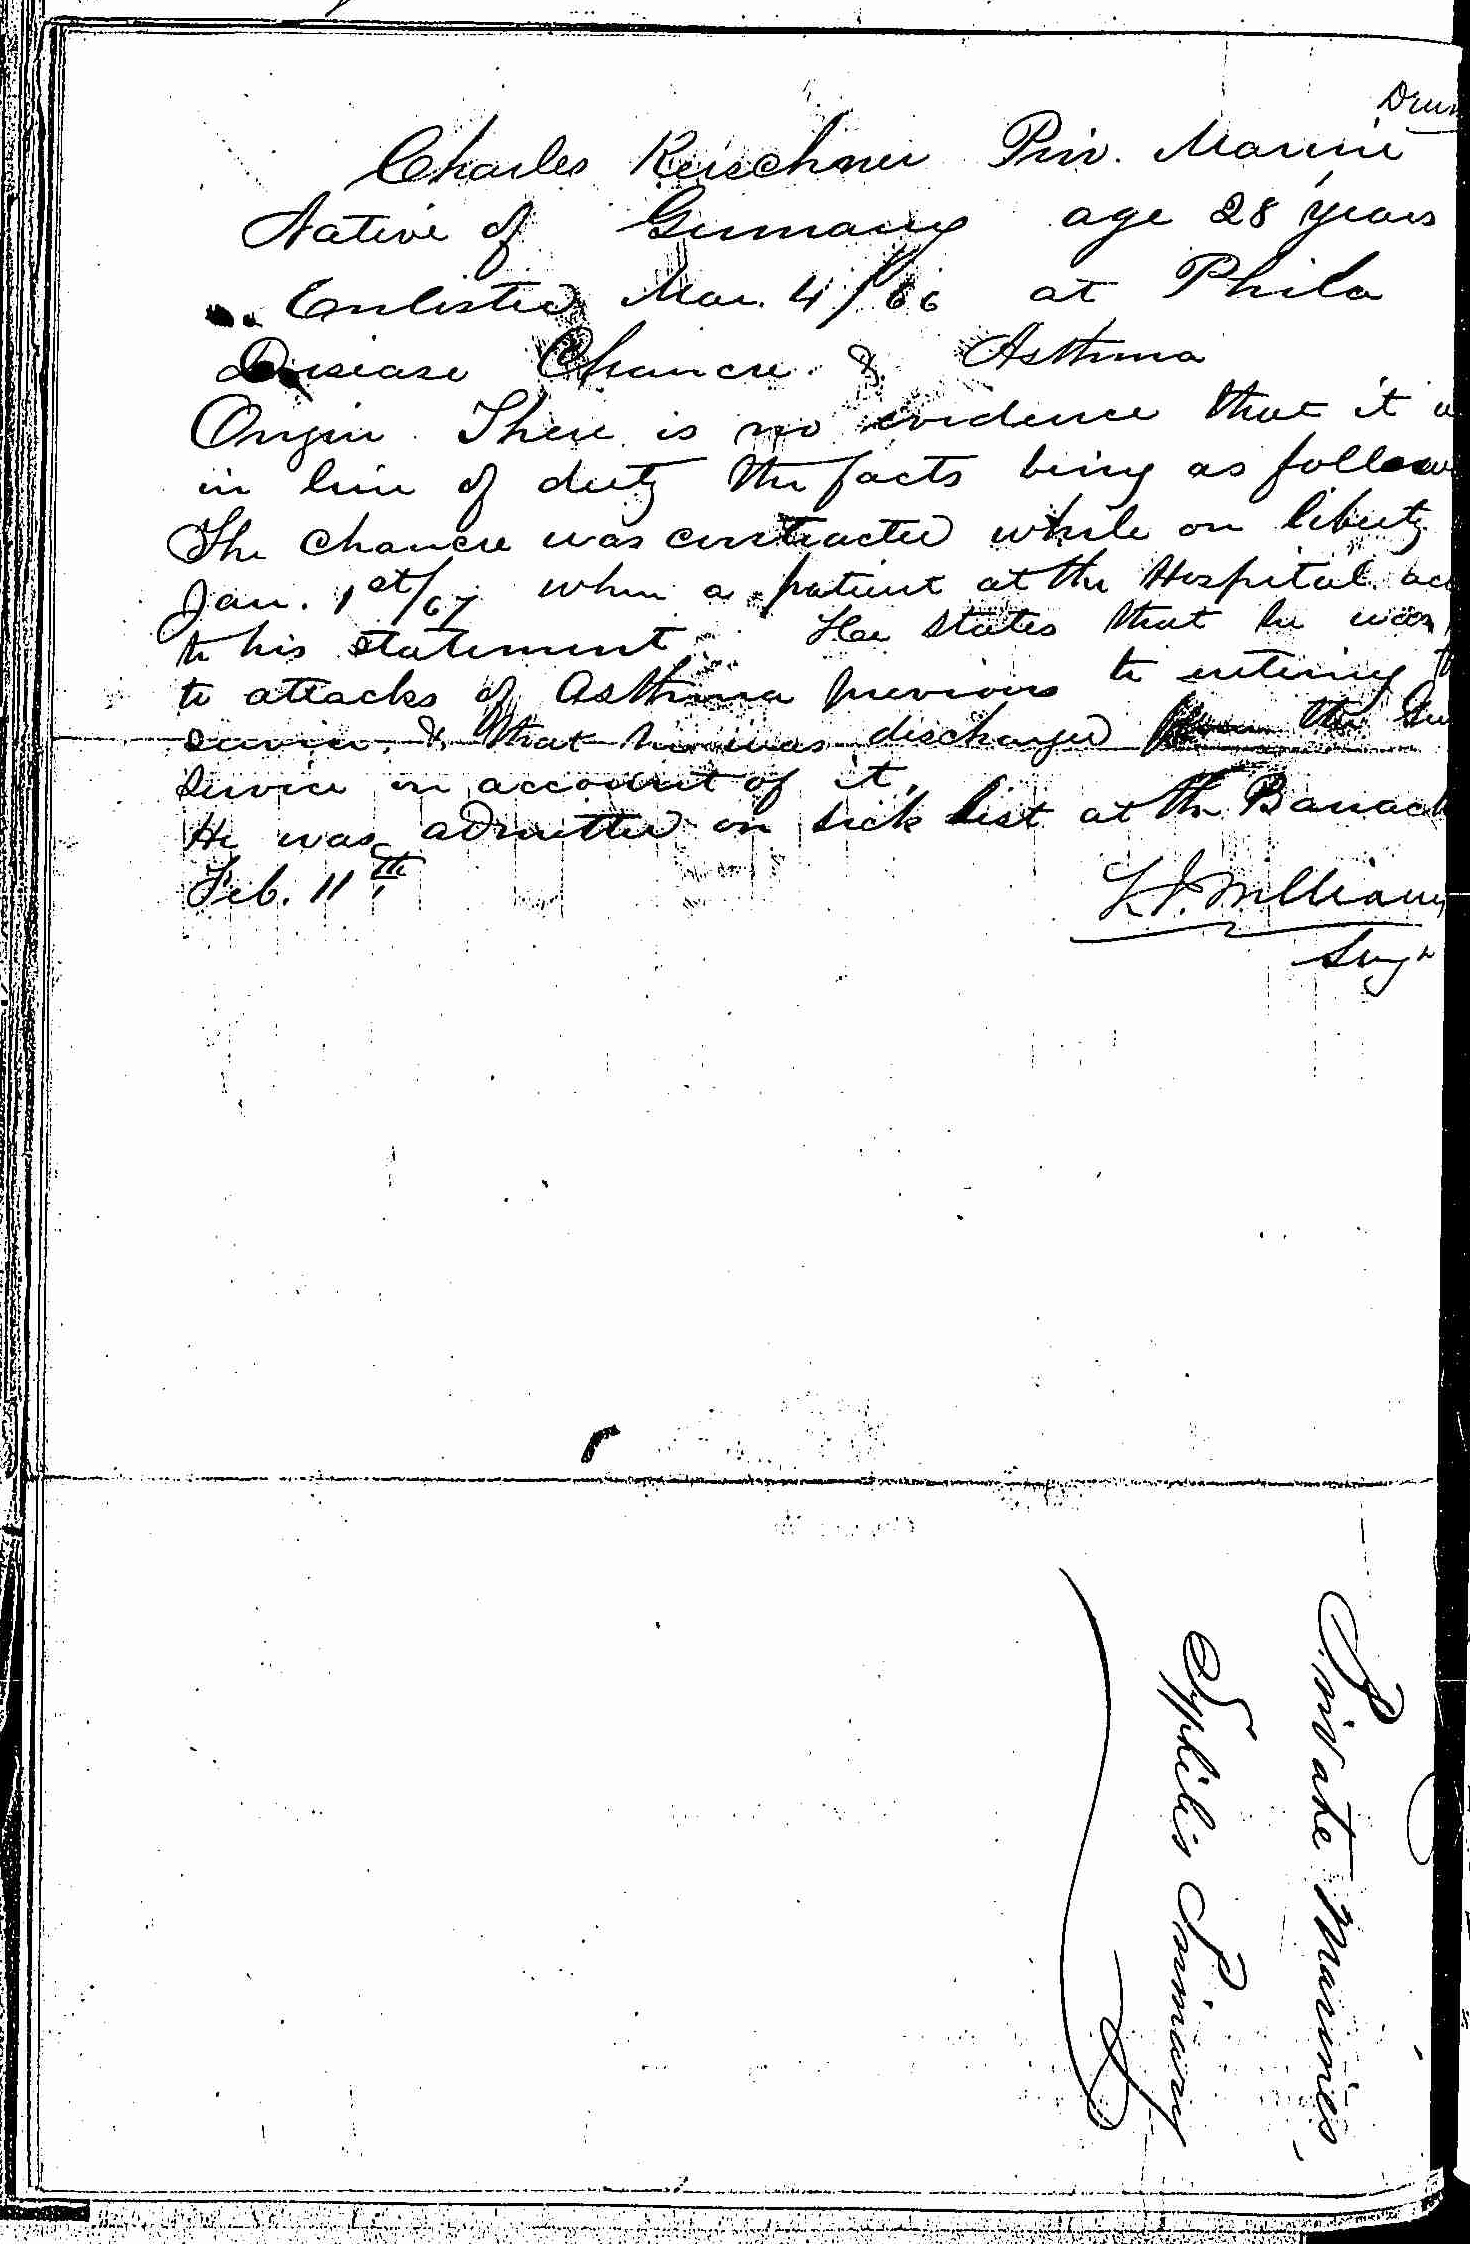 Drum
Charles Kerschner Priv. Marine
Native of Germany age 28 years
Enlisted Mar. 4/66 at Phila
Disease Chancre & Asthma
Origin. There is no evidence that it
in line of duty the facts being as follow
The chancre was contracted while on liberty
Jan. 1st/67 when a patient at the Hospital acc
to his statement. He states that he was
to attacks of Asthma previous to entering
service, & that he was discharged from the
service on account of it.
He was admitted on sick list at the Barrack
Feb. 11th
L. J. Williams
Surgn
Private Marines
Syphilis Primary